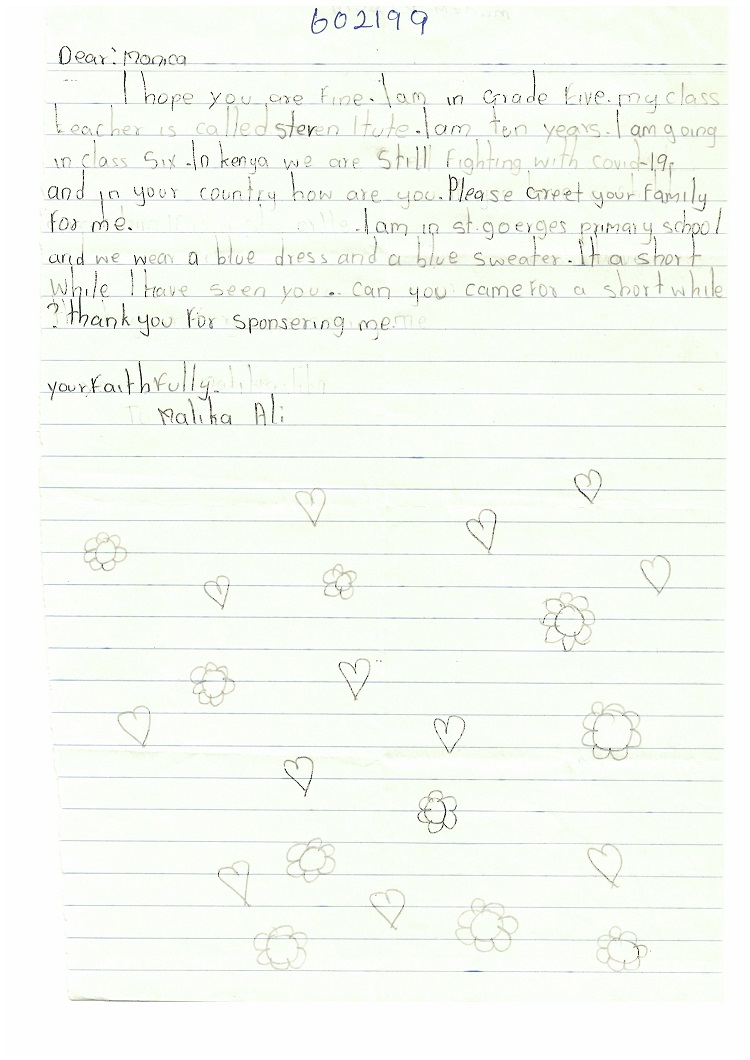 602199
Dear: Monica
I hope you are fine. I am in Grade five. my class
teacher is called steven Itute. I am ten years. I am going
in class Six. In kenya we are Still fighting with covid-19,
and in your country how are you. Please Greet your family
for me. I am in st. goerges primary school
and we wear a blue dress and a blue sweater. It a short
while I have seen you.. can you came for a short while
? thank you for sponsering me.
your faithfully.
Malika Ali